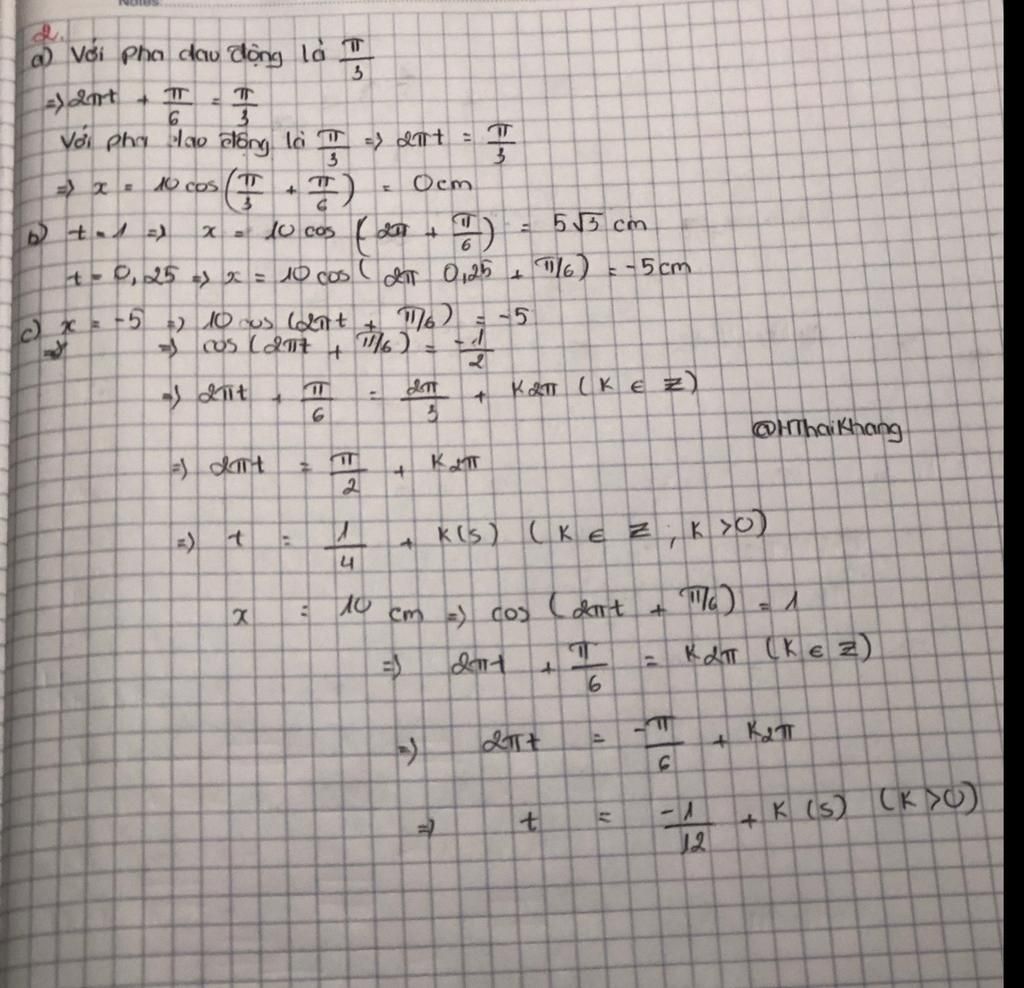 Notes
2.
a) Với pha dau động là π/3
=> 2πt + π/6 = π/3
Với pha dao động là π/3 => 2πt = π/3
=> x = 10 cos(π/3 + π/6) = 0cm
b) t = 1 => x = 10 cos (2π + π/6) = 5√3 cm
t = 0,25 => x = 10 cos( 2π 0,25 + π/6) = -5cm
c) x = -5 => 10 cos (2πt + π/6) = -5
=> => cos (2πt + π/6) = -1/2
=> 2πt + π/6 = 2π/3 + K2π (K ∈ Z)
@HThaiKhang
=> 2πt = π/2 + K2π
=> t = 1/4 + K(s) (K ∈ Z ; K >0)
x = 10 cm => cos (2πt + π/6) = 1
=> 2πt + π/6 = K2π (K ∈ Z)
=> 2πt = -π/6 + K2π
=> t = -1/12 + K (s) (K >0)